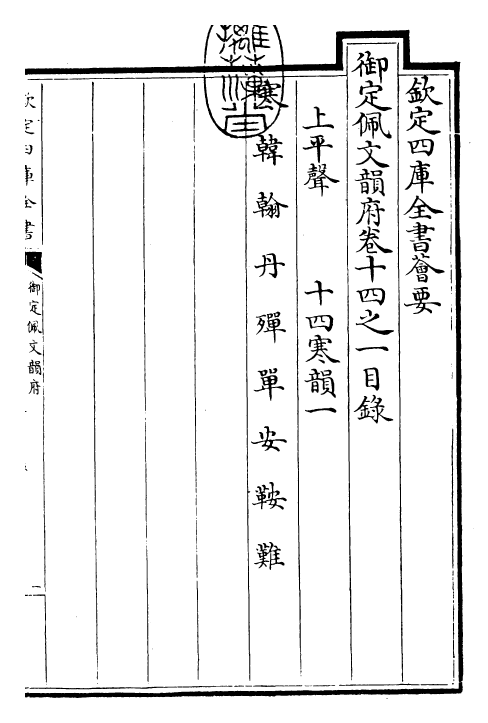 欽定四庫全書薈要
御定佩文韻府卷十四之一目錄
上平聲　十四寒韻一
寒 韓 翰 丹 殫 單 安 鞍 難
欽定四庫全書
御定佩文韻府
一